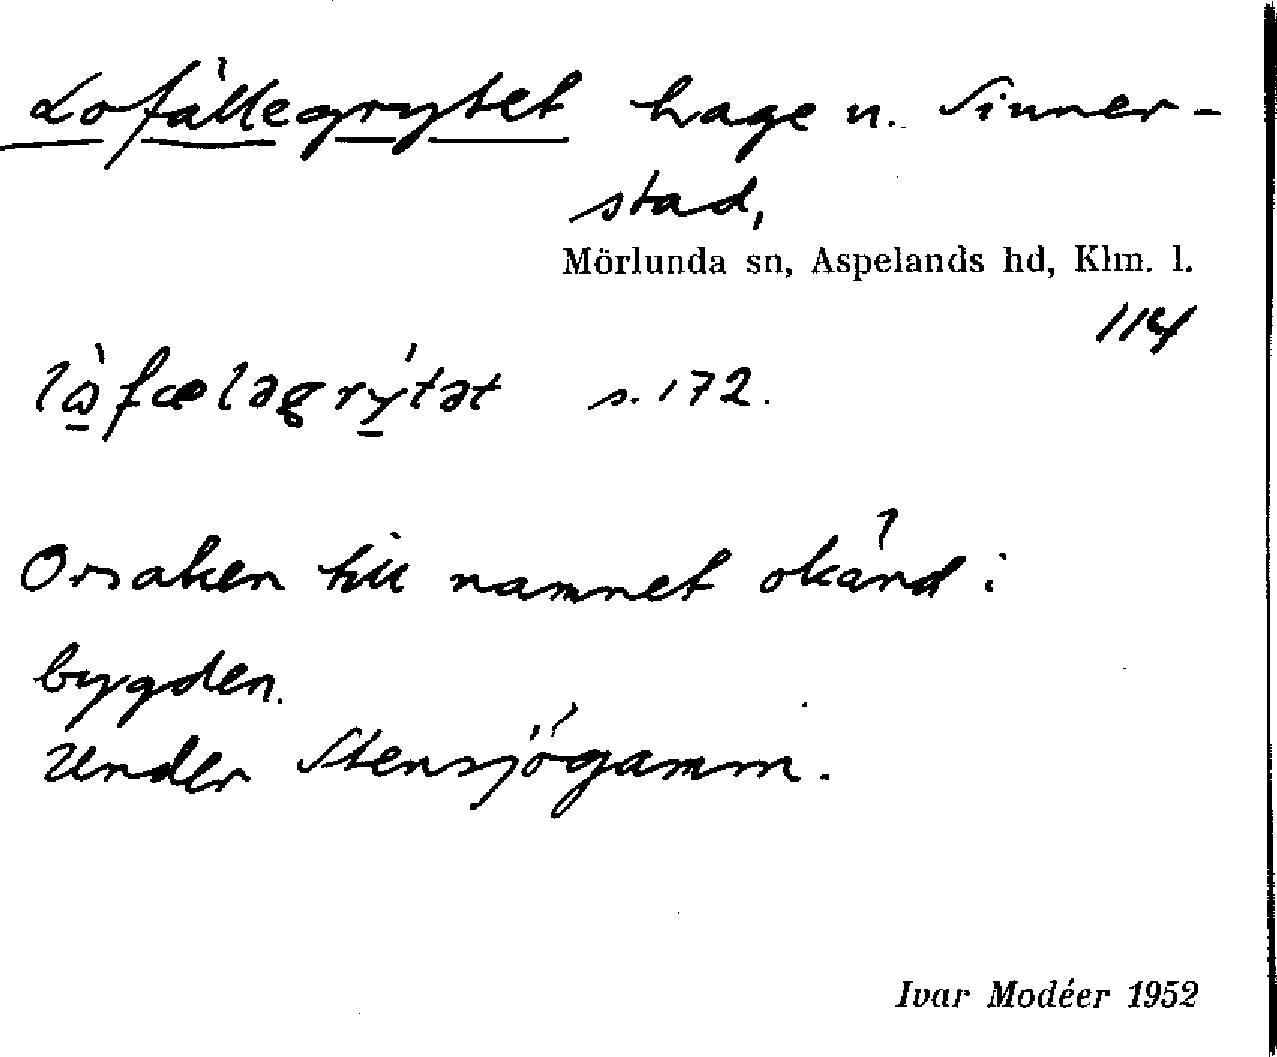 Lofällegrytet hage u. Sinner-
stad,
Mörlunda sn, Aspelands hd, Klm. l.
114
lò̱fæləgrý̱tət s. 172.
Orsaken till namnet okänd i
bygden.
Under Stensjögamm.
Ivar Modéer 1952